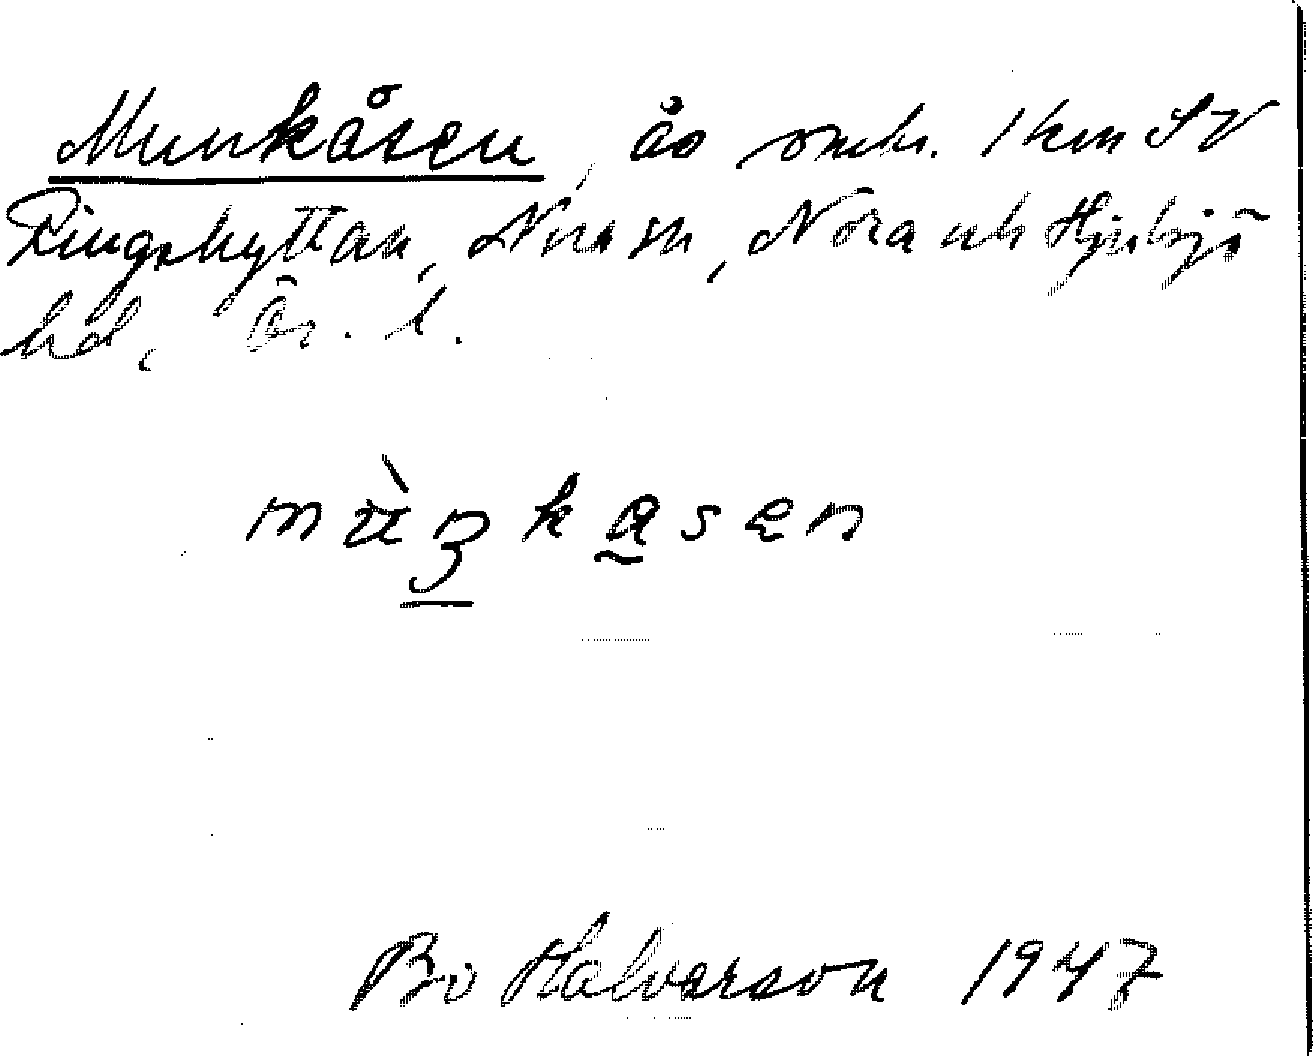 Munkåsen, ås omkr. 1 km SV
Ringshyttan, Nora sn, Nora och Hjulsjö
hd, Ör. l.
mùŋkåsen
Bo Halvarson 1947